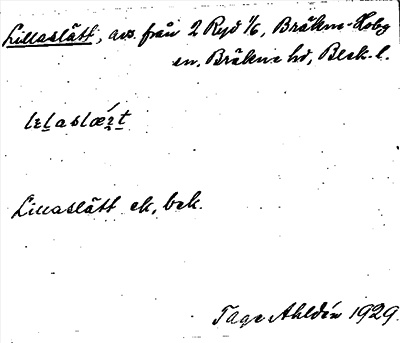 Lillaslätt, avs. från 2 Ryd 1/6, Bräkne-Hoby
sn. Bräkne hd, Blek. l.
Lillaslätt ek, bek.
Tage Ahldén 1929.